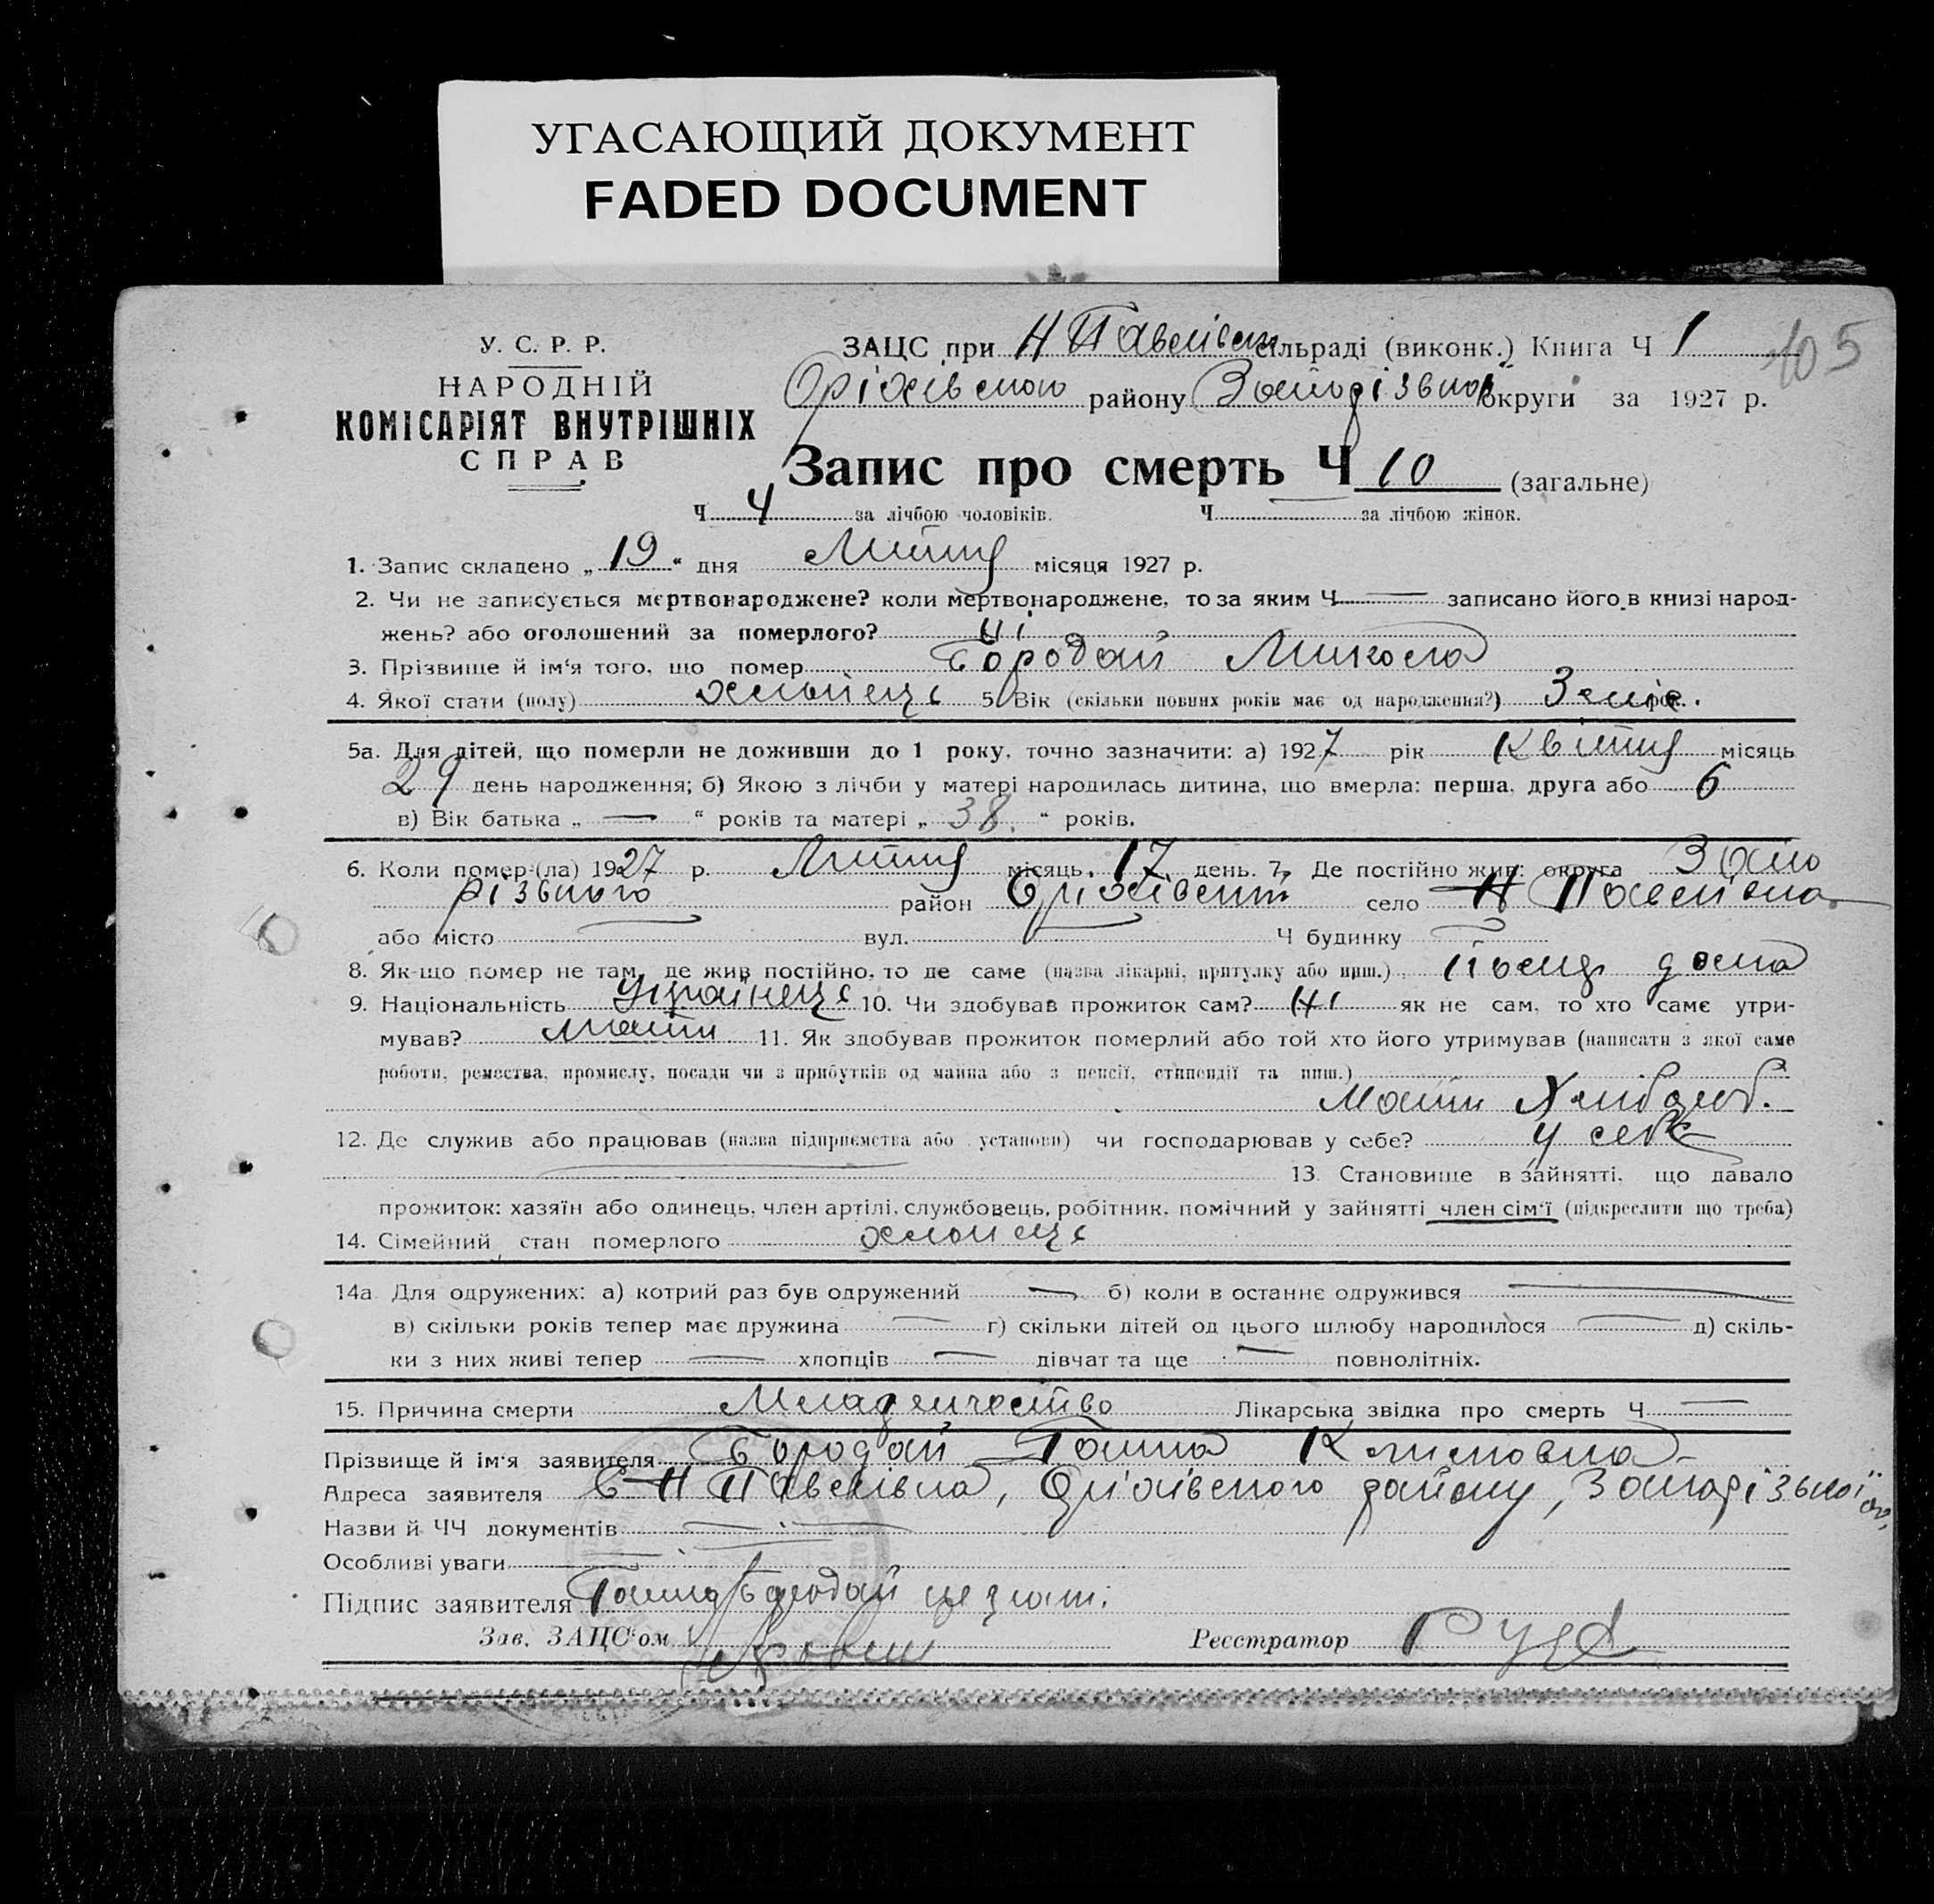 УГАСАЮЩИЙ ДОКУМЕНТ
FADED DOCUMENT
У. С. Р. Р.
НАРОДНІЙ
КОМІСАРІЯТ ВНУТРІШНІХ
СПРАВ
ЗАЦС при Н Павлівськ сільраді (виконк.) Книга Ч 1
105
Оріхівського району Запорізької округи за 1927 р.
Запис про смерть Ч 10 (загальне)
Ч 4 за лічбою чоловіків. Ч — за лічбою жінок.
1. Запис складено „ 19 “ дня Липня місяця 1927 р.
2. Чи не записується мертвонароджене? коли мертвонароджене, то за яким Ч — записано його в книзі народ-
жень? або оголошений за померлого? Ні
3. Прізвище й ім‘я того, що помер Бородай Микола
4. Якої стати (полу) хлопець 5. Вік (скільки повних років має од народження?) 3 міс.
5а. Для дітей, що померли не доживши до 1 року, точно зазначити: а) 1927 рік Квітня місяць
29 день народження; б) Якою з лічби у матері народилась дитина, що вмерла: перша, друга або 6
в) Вік батька „ — “ років та матері „ 38. “ років.
6. Коли помер (ла) 1927 р. Липня місяць 17 день. 7. Де постійно жив: округа Запо
різького район Оріхівськ село Н Павлівка
або місто — вул. — Ч будинку —
8. Як-що помер не там, де жив постійно, то де саме (назва лікарні, притулку або инш.) дома
9. Національність Українець 10. Чи здобував прожиток сам? Ні як не сам, то хто саме утри-
мував? Мати 11. Як здобував прожиток померлий або той хто його утримував (написати з якої саме
роботи, ремества, промислу, посади чи з прибутків од майна або з пенсії, стипендії та инш.)
Мати Хлібороб.
12. Де служив або працював (назва підприємства або установи) чи господарював у себе? у себе
— 13. Становище в зайнятті, що давало
прожиток: хазяїн або одинець, член артілі, службовець, робітник, помічний у зайнятті член сім‘ї (підкреслити що треба)
14. Сімейний стан померлого хлопець
14а. Для одружених: а) котрий раз був одружений — б) коли в останнє одружився —
в) скільки років тепер має дружина — г) скільки дітей од цього шлюбу народилося — д) скіль-
ки з них живі тепер — хлопців — дівчат та ще — повнолітніх.
15. Причина смерти Младенчество Лікарська звідка про смерть Ч —
Прізвище й ім‘я заявителя Бородай Ганна Климовна
Адреса заявителя С Н Павлівка, Оріхівського району, Запорізької ок.
Назви й ЧЧ документів —
Особливі уваги —
Підпис заявителя Ганна Бородай
Зав. ЗАЦС‘ом
Реєстратор